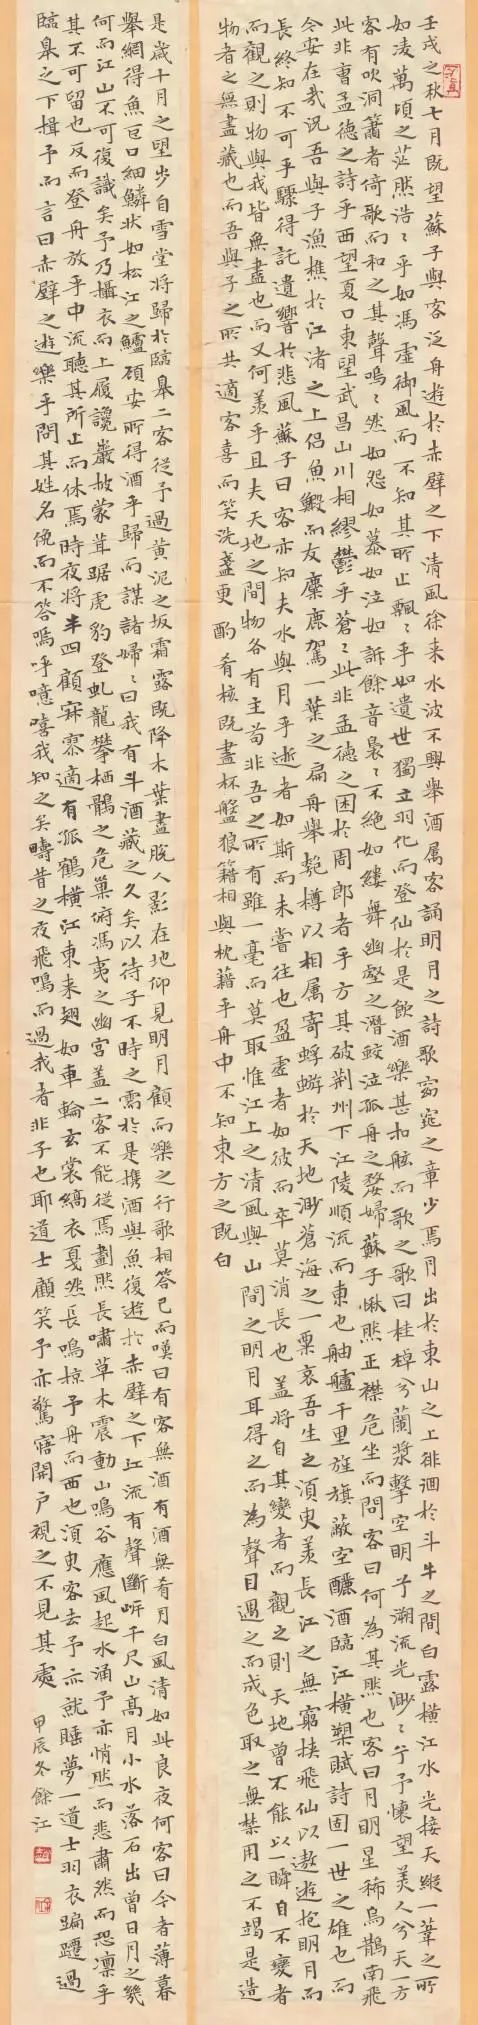 壬戌之秋七月既望蘇子與客泛舟遊於赤壁之下清風徐来水波不興舉酒属客誦明月之詩歌窈窕之章少焉月出於東山之上徘徊於斗牛之間白露横江水光接天縱一葦之所
如凌萬頃之茫然浩〻乎如馮虚御風而不知其所止飄〻乎如遺世獨立羽化而登仙於是飲酒樂甚扣舷而歌之歌曰桂棹兮蘭漿擊空明兮溯流光渺〻兮予懷望美人兮天一方
客有吹洞簫者倚歌而和之其聲嗚〻然如怨如慕如泣如訴餘音裊〻不絶如縷舞幽壑之潛蛟泣孤舟之嫠婦蘇子愀然正襟危坐而問客曰何為其然也客曰月明星稀烏鵲南飛
此非曹孟德之詩乎西望夏口東望武昌山川相繆鬱乎蒼〻此非孟德之困於周郎者乎方其破荆州下江陵順流而東也舳艫千里旌旗蔽空釃酒臨江横槊賦詩固一世之雄也而
今安在哉況吾與子漁樵於江渚之上侣魚鰕而友麋鹿駕一葉之扁舟舉匏樽以相属寄蜉蝣於天地渺蒼海之一粟哀吾生之須臾羨長江之無窮挟飛仙以遨遊抱明月而
長終知不可乎驟得託遺響於悲風蘇子曰客亦知夫水與月乎逝者如斯而未嘗往也盈虚者如彼而卒莫消長也盖將自其變者而觀之則天地曾不能以一瞬自不變者
而觀之則物與我皆無盡也而又何羨乎且夫天地之間物各有主苟非吾之所有雖一毫而莫取惟江上之清風與山間之明月耳得之而為聲目遇之而成色取之無禁用之不竭是造
物者之無盡藏也而吾與子之所共適客喜而笑洗盞更酌肴核既盡杯盤狼籍相與枕藉乎舟中不知東方之既白
是歲十月之望步自雪堂将歸於臨皋二客從予過黄泥之坂霜露既降木葉盡脱人影在地仰見明月顧而樂之行歌相答已而嘆曰有客無酒有酒無肴月白風清如此良夜何客曰今者薄暮
舉網得魚巨口細鱗狀如松江之鱸顧安所得酒乎歸而謀諸婦〻曰我有斗酒藏之久矣以待子不時之需於是携酒與魚復遊於赤壁之下江流有聲斷岸千尺山高月小水落石出曾日月之幾
何而江山不可復識矣予乃攝衣而上履巉巖披蒙茸踞虎豹登虬龍攀栖鶻之危巢俯馮夷之幽宫盖二客不能從焉劃然長嘯草木震動山鳴谷應風起水涌予亦悄然而悲肅然而恐凛乎
其不可留也反而登舟放乎中流聽其所止而休焉時夜将半四顧寂寥適有孤鶴横江東来翅如車輪玄裳縞衣戛然長鳴掠予舟而西也須臾客去予亦就睡夢一道士羽衣蹁躚過
臨皋之下揖予而言曰赤壁之遊樂乎問其姓名俛而不答嗚呼噫嘻我知之矣疇昔之夜飛鳴而過我者非子也耶道士顧笑予亦驚寤開户視之不見其處
甲辰冬餘江